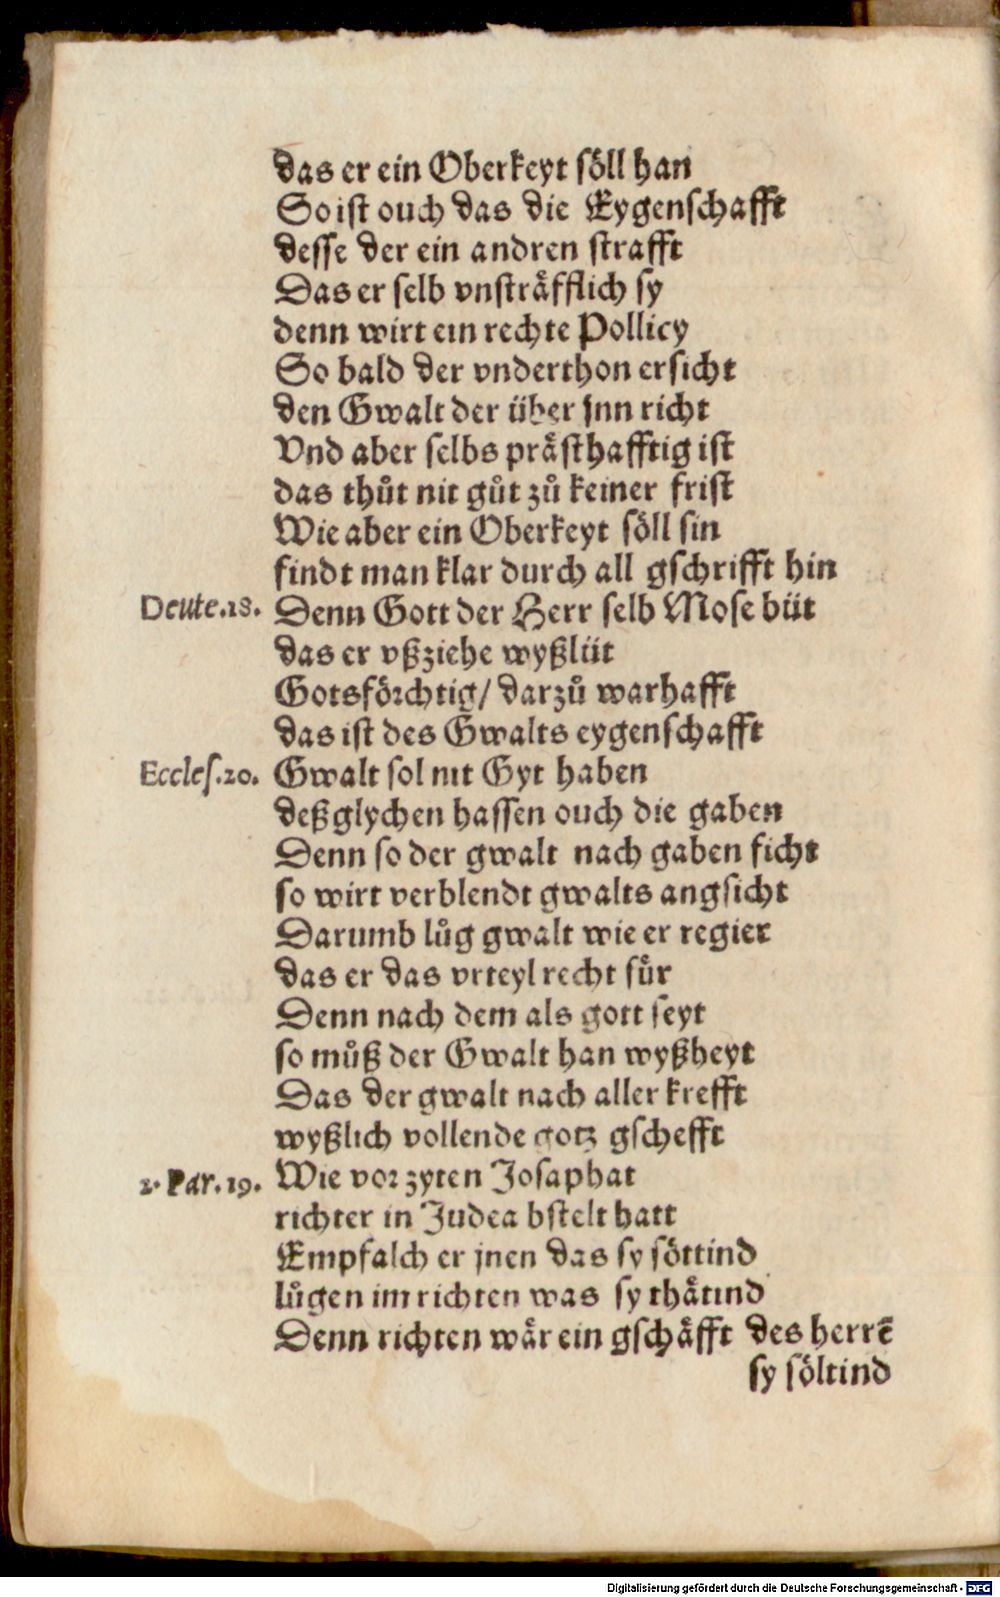 das er ein Oberkeyt söll han
So ist ouch das die Eygenschafft
desse der ein andren strafft
Das er selb vnsträfflich sy
denn wirt ein rechte Pollicy
So bald der vnderthon ersicht
den Gwalt der über jnn richt
Vnd aber selbs prästhafftig ist
das thůt nit gůt zů keiner frist
Wie aber ein Oberkeyt söll sin
findt man klar durch all gschrifft hin
Deute.18. Denn Gott der Herr selb Mose büt
das er vßziehe wyßlüt
Gotsförchtig/ darzů warhafft
das ist des Gwalts eygenschafft
Eccles.20. Gwalt sol nit Gyt haben
deßglychen hassen ouch die gaben
Denn so der gwalt nach gaben ficht
so wirt verblendt gwalts angsicht
Darumb lůg gwalt wie er regier
das er das vrteyl recht fůr
Denn nach dem als gott seyt
so můß der Gwalt han wyßheyt
Das der gwalt nach aller krefft
wyßlich vollende gotz gschefft
2. Par.19. Wie vor zyten Josaphat
richter in Judea bstelt hatt
Empfalch er jnen das sy söttind
lůgen im richten was sy thätind
Denn richten wär ein gschäfft des herrē
sy söltind
Digitalisierung gefördert durch die Deutsche Forschungsgemeinschaft - DFG